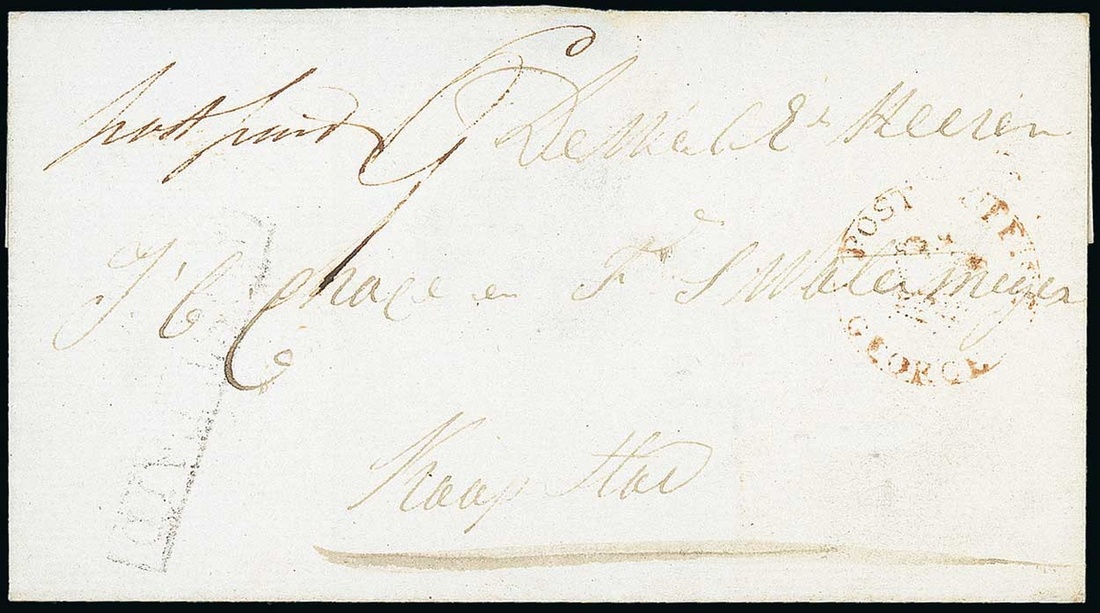 post paid 6 De Weled Es Heeren
J. C. Chase en Fk S Watermeyer
Kaap Stad
POST OFFICE
GEORGE